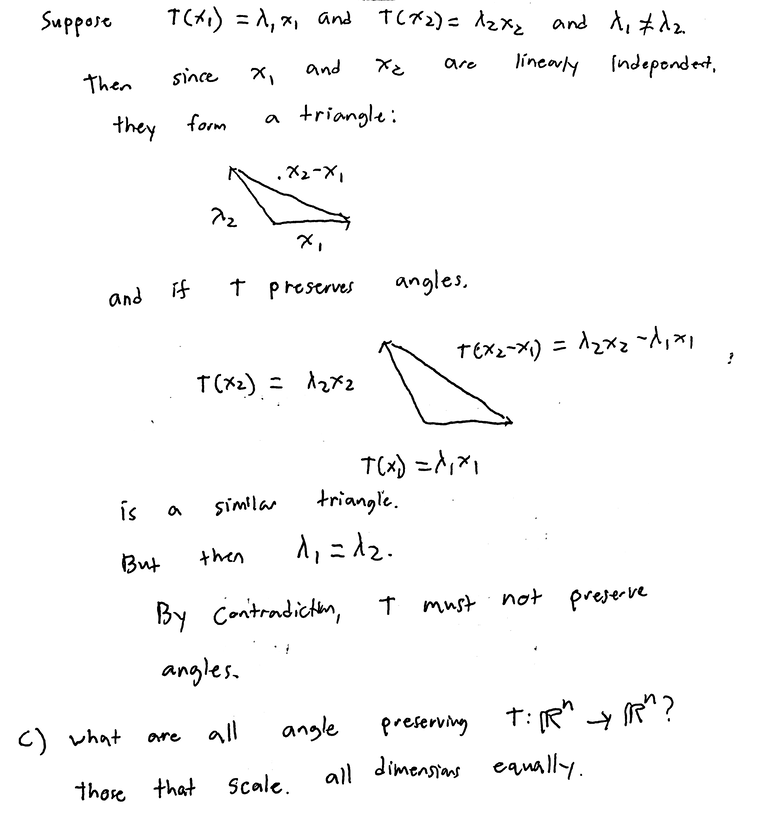 Suppose T(x₁) = λ₁x₁ and T(x₂) = λ₂x₂ and λ₁ ≠ λ₂.
Then since x₁ and x₂ are linearly independent,
they form a triangle:
x₂-x₁
λ₂
x₁
and if T preserves angles.
T(x₂-x₁) = λ₂x₂ - λ₁x₁ ,
T(x₂) = λ₂x₂
T(x₁) = λ₁x₁
is a similar triangle.
But then λ₁ = λ₂.
By contradiction, T must not preserve
angles.
c) what are all angle preserving T: ℝⁿ → ℝⁿ?
those that scale. all dimensions equally.